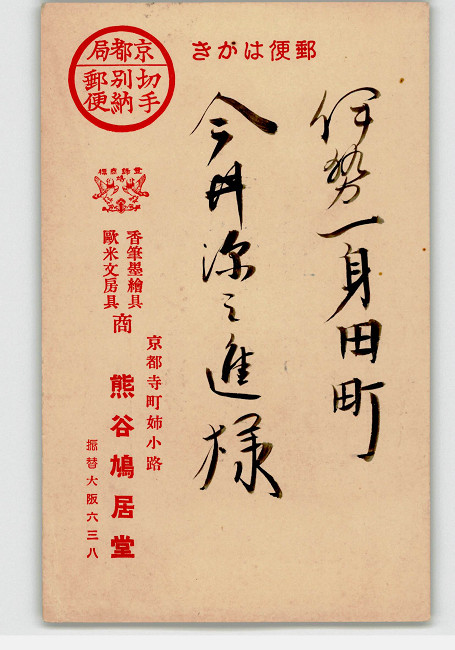 郵便はがき
伊勢一身田町
今井源之進様
京都局
切手別納郵便
登録商標
香筆墨繪具
歐米文房具
商
京都寺町姉小路
熊谷鳩居堂
振替大阪六三八